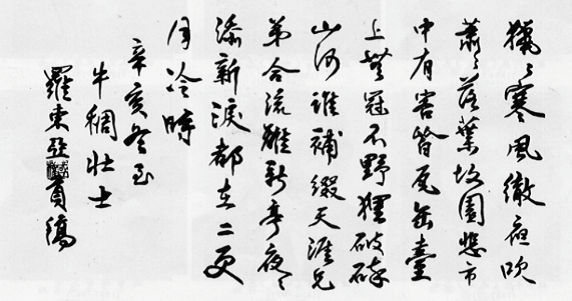 獵〻寒風徹夜吹
蕭〻落葉故園悲市
中有皆瓦缶臺
上無冠不野狸破碎
山河誰補綴天涯兄
弟合流離新亭夜〻
添新淚都在二更
月冷時
辛亥冬至
牛稠壯士
羅東亞